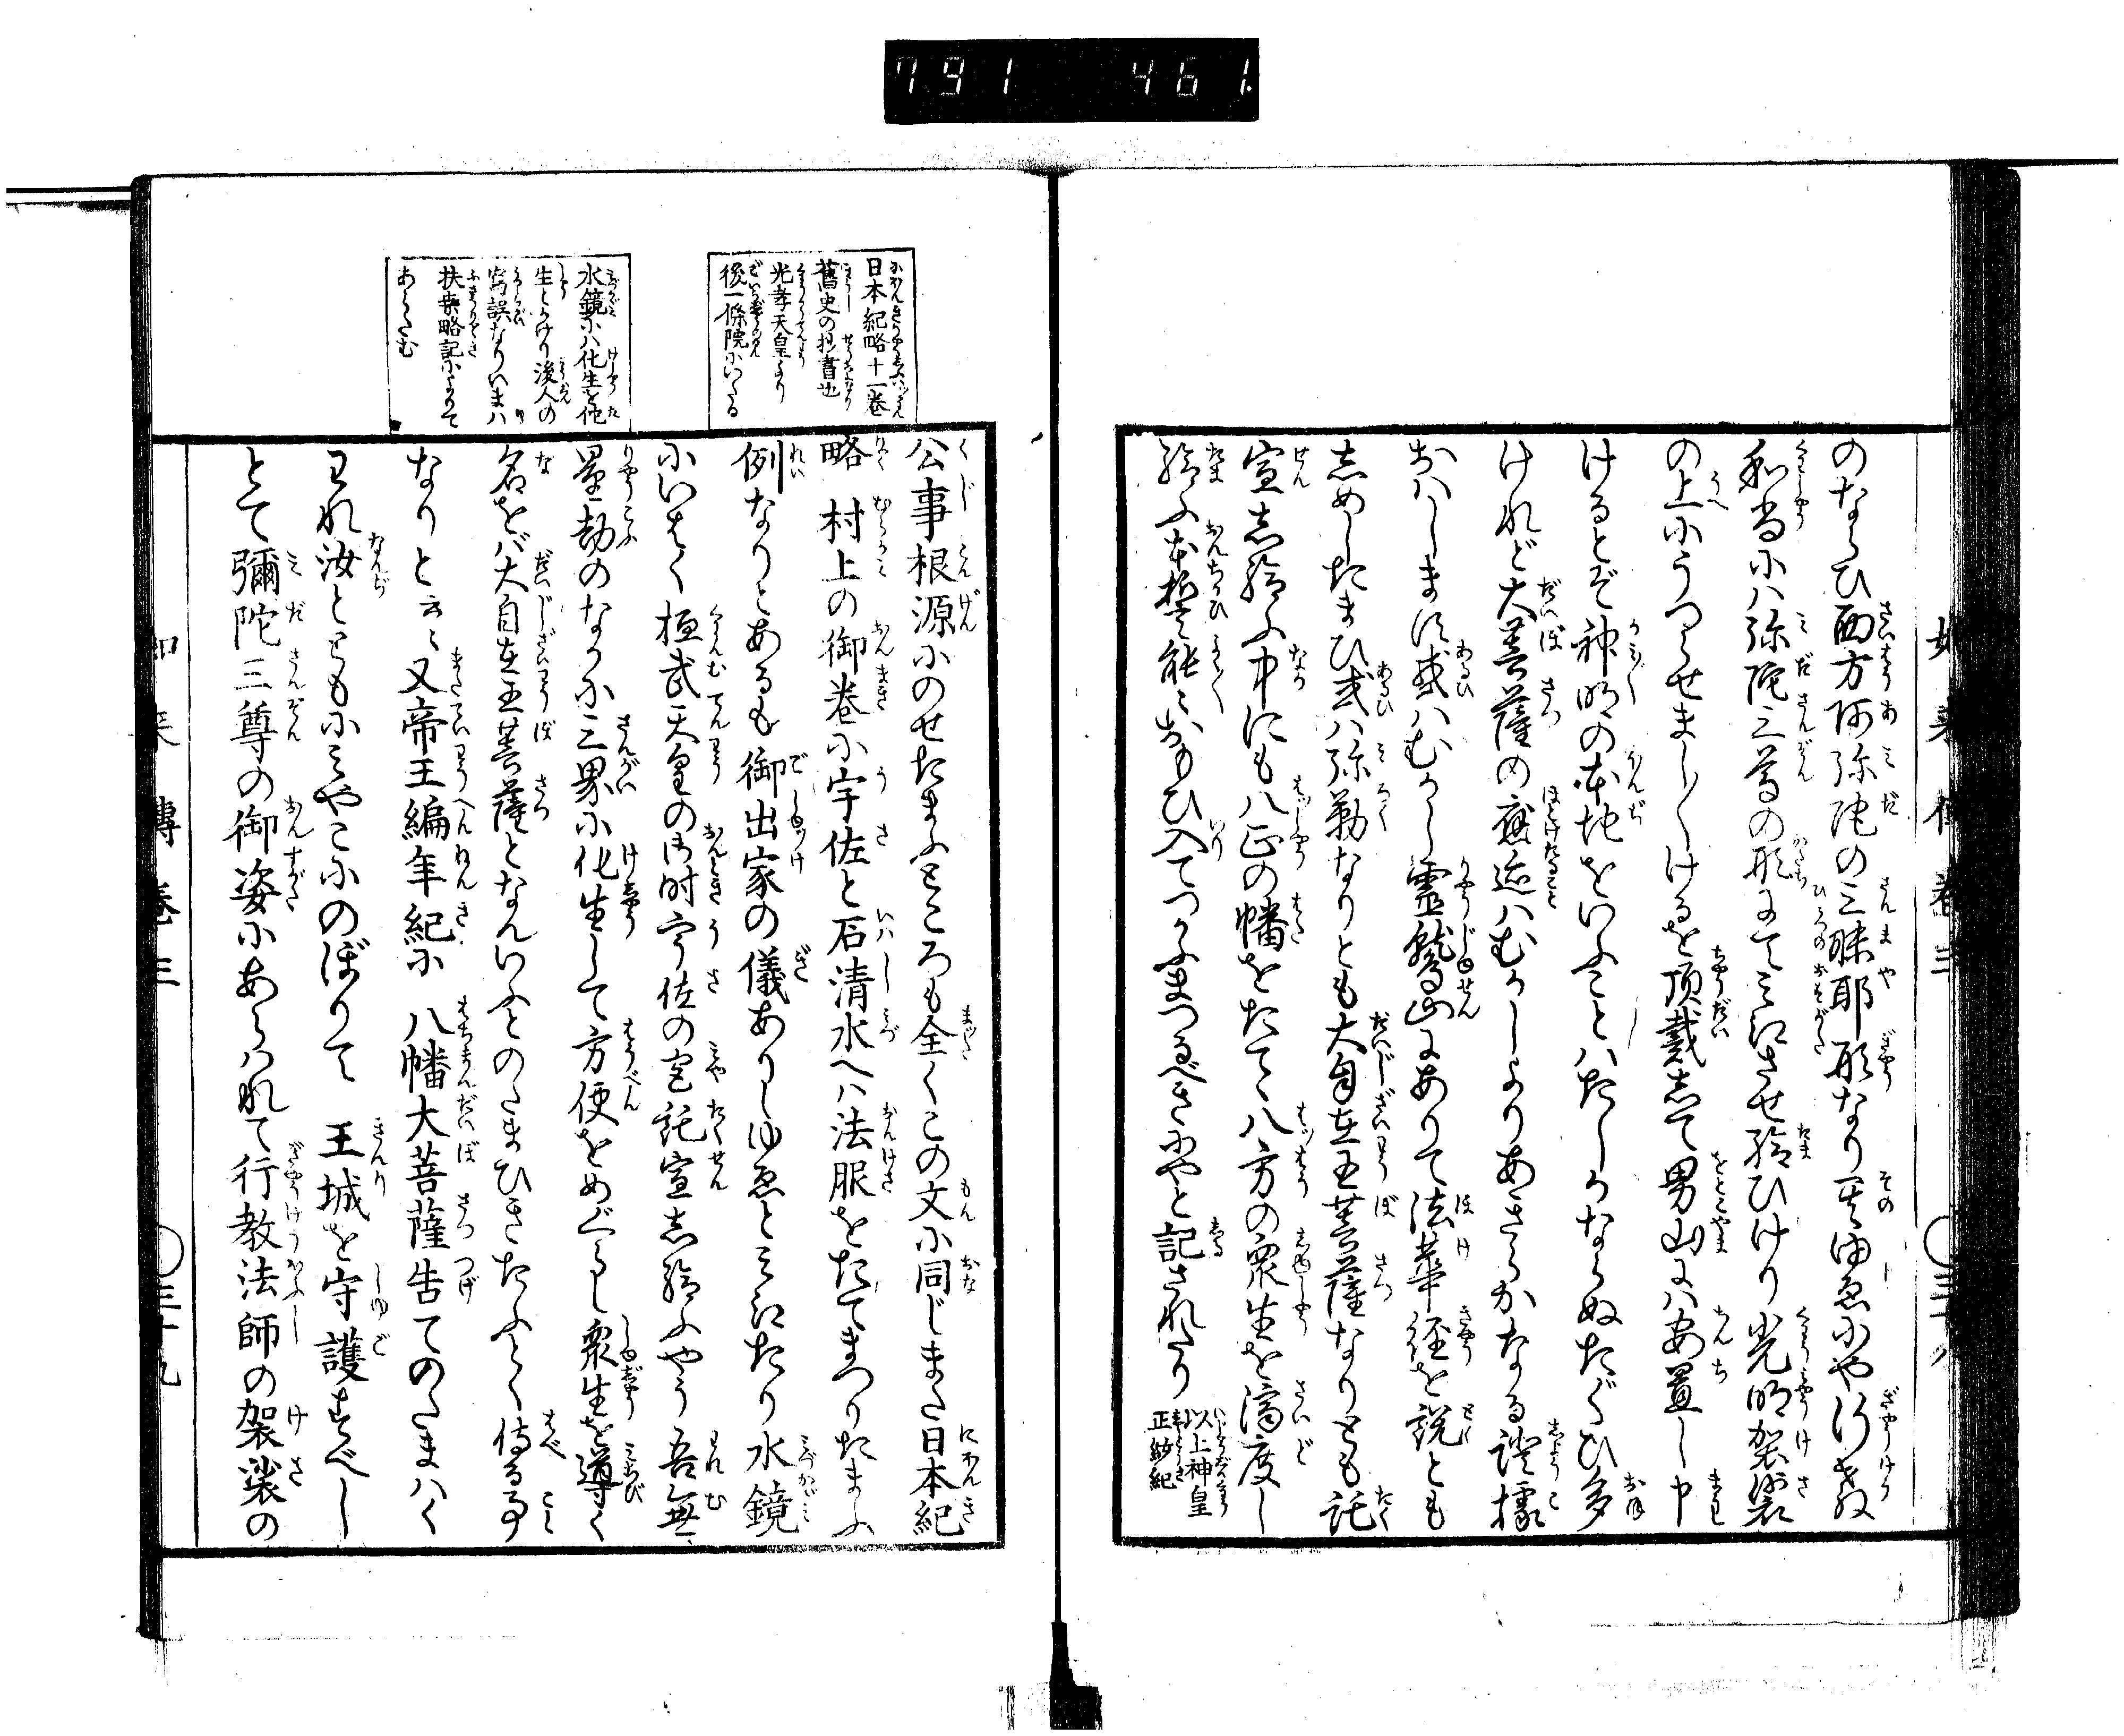 791 461.
のならひ西方阿弥陀の三昧耶形なり其ゆゑにや行教
和尚には弥陀三尊の形にて見えさせ給ひけり光明袈裟
の上にうつらせまし〳〵けるを頂戴して男山には安置し申
けるとぞ神明の本地をいふことはたしかならぬたぐひ多
けれど大菩薩の應迹はむかしよりあきらかなる證據
おはします或はむかし霊鷲山にありて法華経を説とも
しめしたまひ或は弥勒なりとも大自在王菩薩なりとも託
宣し給ふ中にも八正の幡をたてゝ八方の衆生を済度し
給ふ本誓能々おもひ入てつかふまつるべきにやと記されたり
以上神皇
正統紀
日本紀略十一巻
舊史の抄書也
光孝天皇より
後一條院にいたる
水鏡には化生を他
生とかけり後人の
寫誤なりいまハ
扶桑略記によりて
あらたむ
公事根源にのせたまふところも全くこの文に同じまた日本紀
略 村上の御巻に宇佐と石清水へは法服をたてまつりたまふ
例なりとあるも御出家の儀ありしゆゑと見えたり水鏡
にいはく桓武天皇の御時宇佐の宮託宣し給ふやう吾無
量劫のなかに三界に化生して方便をめぐらし衆生を導く
名をば大自在王菩薩となんいふとのたまひきたふとく侍る事
なりと云々又帝王編年紀に 八幡大菩薩告てのたまはく
われ汝とともにみやこにのぼりて 王城を守護すべし
とて彌陀三尊の御姿にあらはれて行教法師の袈裟の